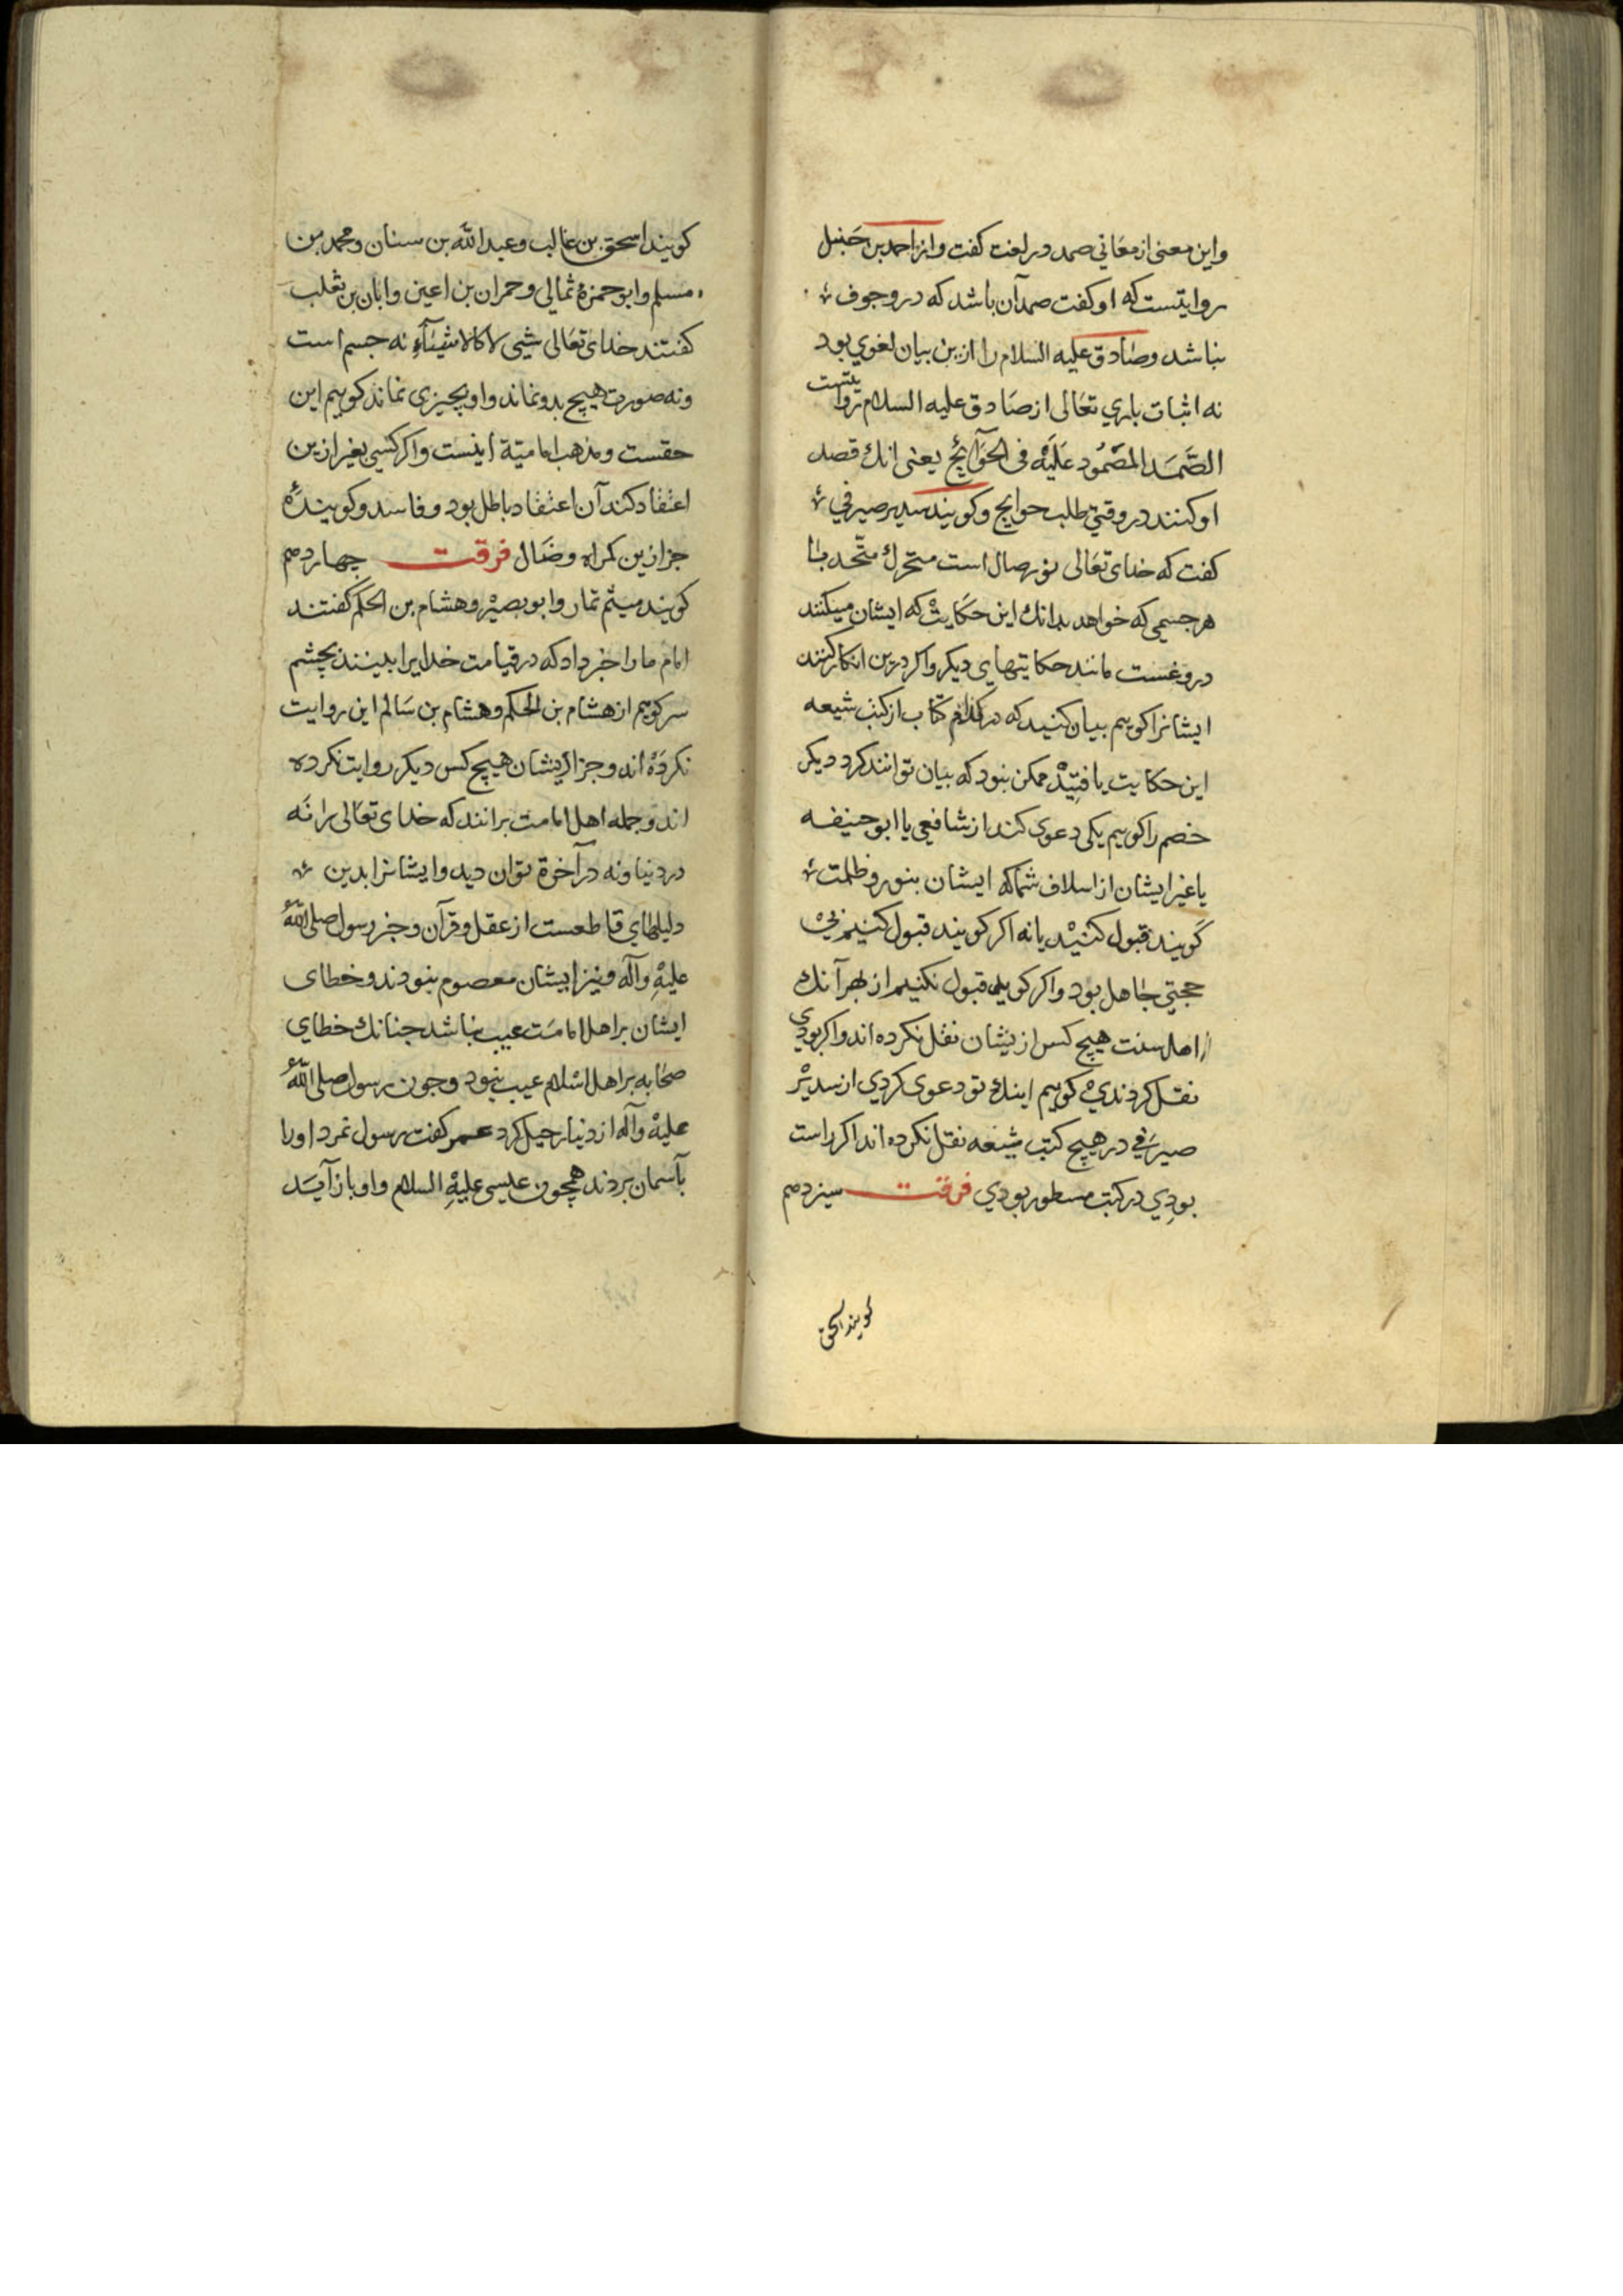 واین معنی از معانی صمد در لغت کفت واز احمد بن حنبل
روایتست که او کفت صمد آن باشد که درو جوف
نباشد وصادق علیه السلام را ازین بیان لغوی بود
نه اثبات باری تعالی از صادق علیه السلام روایتست
الصَّمَد المصْمُود عَلَیْه فی الحوَآئج یعنی انك قصد
او کنند در وقتی طلب حوایج وکویند سدیر صیرفی
کفت که خدای تعالی نورصال است متحرك متّحد با
هر جسمی که خواهد بدانك این حکایت که ایشان میکنند
دروغست مانند حکایتهای دیکر واکر درین انکار کنند
ایشانرا کوییم بیان کنید که در کدام کتاب از کتب شیعه
این حکایت یافتید ممکن نبود که بیان توانند کرد دیکر
خصم را کوییم یکی دعوی کند از شافعی یا ابو حنیفه
یا غیر ایشان از اسلاف شما که ایشان بنور وظلمت
کویند قبول کنید یا نه اکر کویند قبول کنیم بی
حجتی جاهل بود واکر کویند قبول نکنیم از بهر آنك
از اهل سنت هیچ کس ازیشان نقل نکرده اند واکر بودی
نقل کردندی کوییم اینك تو دعوی کردی از سدیر
صیرفی در هیچ کتب شیعه نقل نکرده اند اکر راست
بودی در کتب مسطور بودی فرقت سیزدهم
کویند اسحق
کویند اسحق بن غالب وعبد الله بن سنان ومحمد بن
مسلم وابو حمزهٔ ثمالی وحمران بن اعین وابان بن تغلب
کفتند خدای تعالی شیی لا کالاشیآء نه جسم است
ونه صورت هیچ بدو نماند واو بچیزی نماند کوییم این
حقست ومذهب امامیّة اینست واکر کسی بغیر ازین
اعتقاد کند آن اعتقاد باطل بود وفاسد وکویندهٔ
جز ازین کمراه وضال فرقت چهاردهم
کویند میثم تمار وابو بصیر وهشام بن الحکم کفتند
امام ما را خبر داد که در قیامت خدایرا ببینند بچشم
سر کوییم از هشام بن الحکم وهشام بن سالم این روایت
نکرده اند وجز ازیشان هیچ کس دیکر روایت نکرده
اند وجمله اهل امامت برانند که خدای تعالی را نه
در دنیا ونه در آخرة توان دید وایشانرا بدین
دلیلهای قاطعست از عقل وقرآن وخبر رسول صلی الله
علیهِ وآله ونیز ایشان معصوم نبودند وخطای
ایشان بر اهل امامت عیب نباشد جنانك خطای
صحابه بر اهل اسلام عیب نبود وجون رسول صلی الله
علیه وآله از دنیا رحیل کرد عمر کفت رسول نمرد اورا
بآسمان بردند همچون عیسی علیهِ السلام واو باز آید